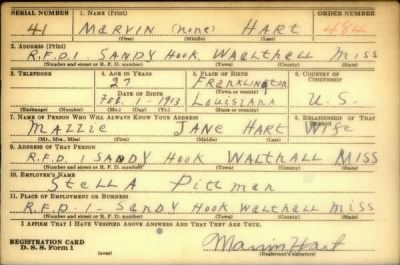 SERIAL NUMBER 1. NAME (Print) ORDER NUMBER
41 MARVIN (none) HART 484
(First) (Middle) (Last)
2. ADDRESS (Print)
R.F.D.1 SANDY HOOK WALTHALL MISS
(Number and street or R. F. D. number) (Town) (County) (State)
3. TELEPHONE 4. AGE IN YEARS 5. PLACE OF BIRTH 6. COUNTRY OF CITIZENSHIP
27 FRANKLINGTON
DATE OF BIRTH (Town or county)
FEB. 1-1913 LOUISIANA U.S.
(Exchange) (Number) (Mo.) (Day) (Yr.) (State or country)
7. NAME OF PERSON WHO WILL ALWAYS KNOW YOUR ADDRESS 8. RELATIONSHIP OF THAT PERSON
MAZZIE JANE HART WIFE
(Mr., Mrs., Miss) (First) (Middle) (Last)
9. ADDRESS OF THAT PERSON
R.F.D.1 SANDY HOOK WALTHALL MISS
(Number and street or R. F. D. number) (Town) (County) (State)
10. EMPLOYER'S NAME
STELLA PITTMAN
11. PLACE OF EMPLOYMENT OR BUSINESS
R.F.D-1- SANDY HOOK WALTHALL MISS
(Number and street or R. F. D. number) (Town) (County) (State)
I AFFIRM THAT I HAVE VERIFIED ABOVE ANSWERS AND THAT THEY ARE TRUE.
REGISTRATION CARD
D. S. S. Form 1
Marvin Hart
(Registrant's signature)